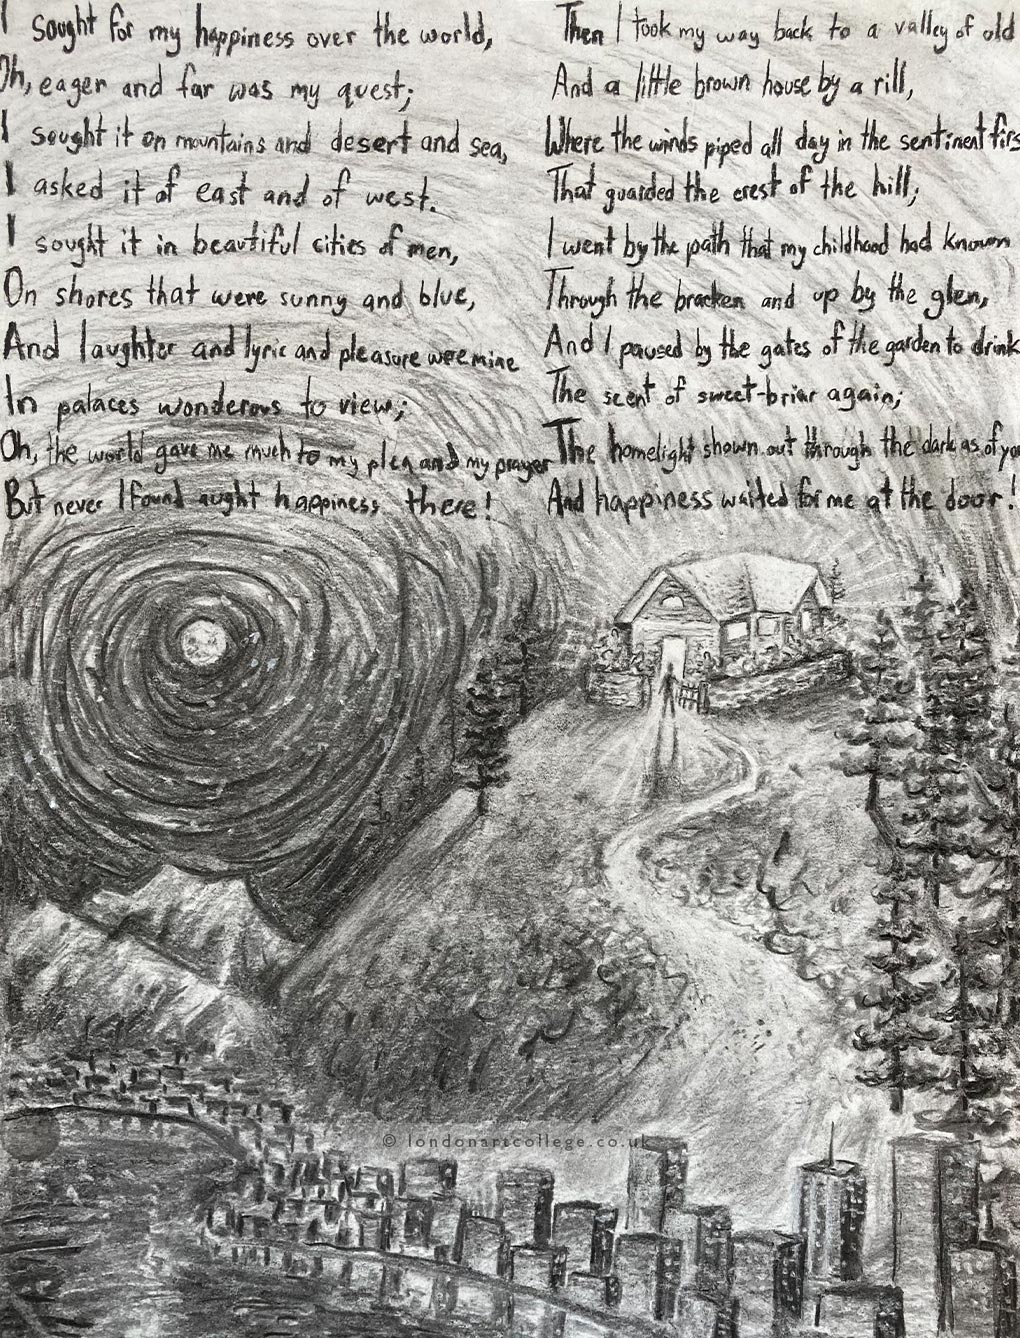 I sought for my happiness over the world,
Oh, eager and far was my quest;
I sought it on mountains and desert and sea,
I asked it of east and of west.
I sought it in beautiful cities of men,
On shores that were sunny and blue,
And laughter and lyric and pleasure were mine
In palaces wonderous to view;
Oh, the world gave me much to my plea and my prayer
But never I found aught happiness there!
Then I took my way back to a valley of old
And a little brown house by a rill,
Where the winds piped all day in the sentinel firs
That guarded the crest of the hill;
I went by the path that my childhood had known
Through the bracken and up by the glen,
And I paused by the gates of the garden to drink
The scent of sweet-briar again;
The homelight shown out through the dark as of yo
And happiness waited for me at the door!
© londonartcollege.co.uk